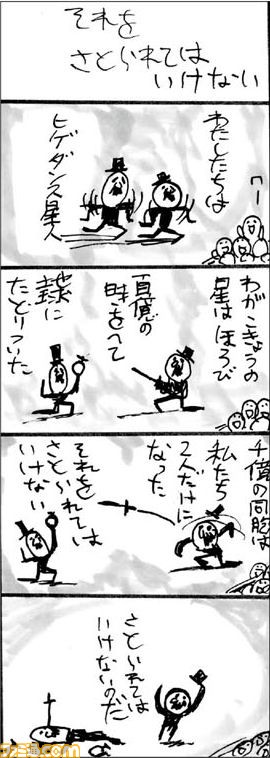 それを
さとられては
いけない
わたしたちは
ヒゲダンス星人
わがこきょうの
星はほろび
百億の
時をへて
地球に
たどりついた
千億の同胞は
私たち
2人だけに
なった
それを
さとられては
いけない
さとられては
いけないのだ